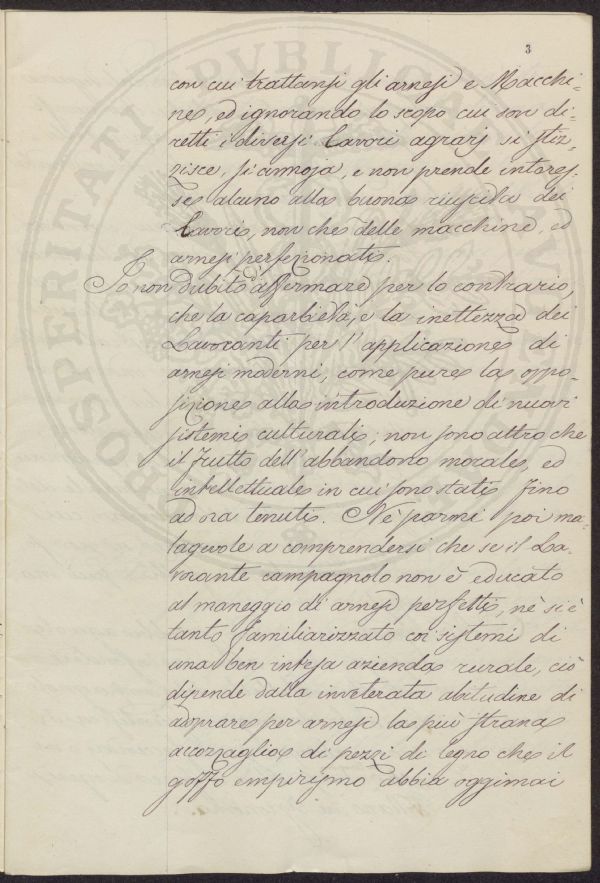 3
con cui trattansi gli arnesi e Macchi-
ne, ed ignorando lo scopo cui son di-
retti i diversi lavori agrarj si stiz-
zisce, si annoja, e non prende interes-
se alcuno alla buona riuscita dei
lavori, non che delle macchine, ed
arnesi perfezionati.
Io non dubito affermare per lo contrario,
che la caparbietà, e la inettezza dei
Lavoranti per l'applicazione di
arnesi moderni, come pure la oppo-
sizione alla introduzione di nuovi
sistemi culturali, non sono altro che
il frutto dell'abbandono morale, ed
intellettuale in cui sono stati fino
ad ora tenuti. Nè parmi poi ma-
lagevole a comprendersi che se il La-
vorante campagnolo non è educato
al maneggio di arnesi perfetti, nè si è
tanto familiarizzato coi sistemi di
una ben intesa azienda rurale, ciò
dipende dalla inveterata abitudine di
adoprare per arnesi la più strana
accozzaglia di pezzi di legno che il
goffo empirismo abbia oggimai
PROSPERITATI PUBLICAE